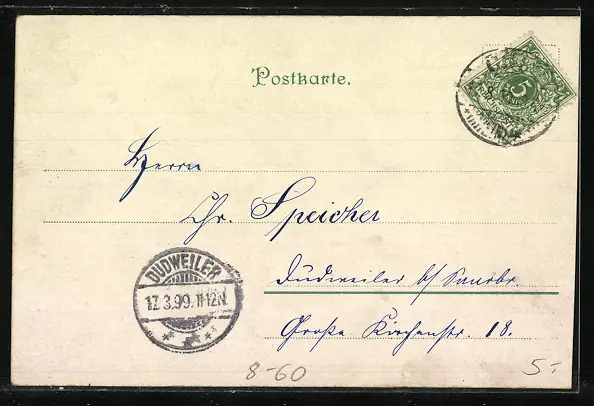 Postkarte.
5
Herrn
Chr. Speicher
Dudweiler b/ Saarbr.
Große Kirchenstr. 18.
DUDWEILER
17.3.99.11-12N.
8-60
5.-